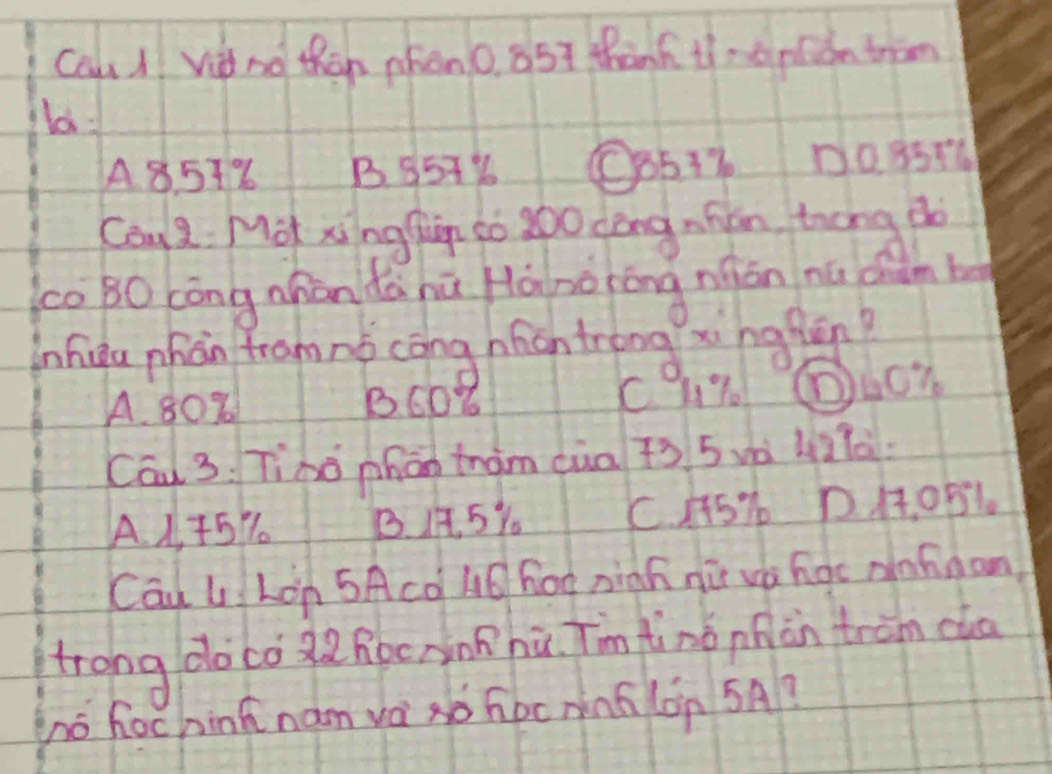 Câu 1 Viết số thập phân 0,857 thành tỉ số phần trăm
là:
A 8,57% B. 857% C 85,7% D. 0,857%
Câu 2: Một xí nghiệp có 200 công nhân, trong đó
có 80 công nhân là nữ. Hỏi số công nhân nữ chiếm bao
nhiêu phần trăm số công nhân trong xí nghiệp?
A. 80% B 60% C 4% D 40%
Câu 3: Tỉ số phần trăm của 73,5 và 42 là:
A. 1,75% B. 17,5% C. 175% D. 17,05%
Câu 4: Lớp 5A có 46 học sinh nữ và học sinh nam,
trong đó có 22 học sinh nữ. Tìm tỉ số phần trăm của
số học sinh nam và số học sinh lớp 5A?